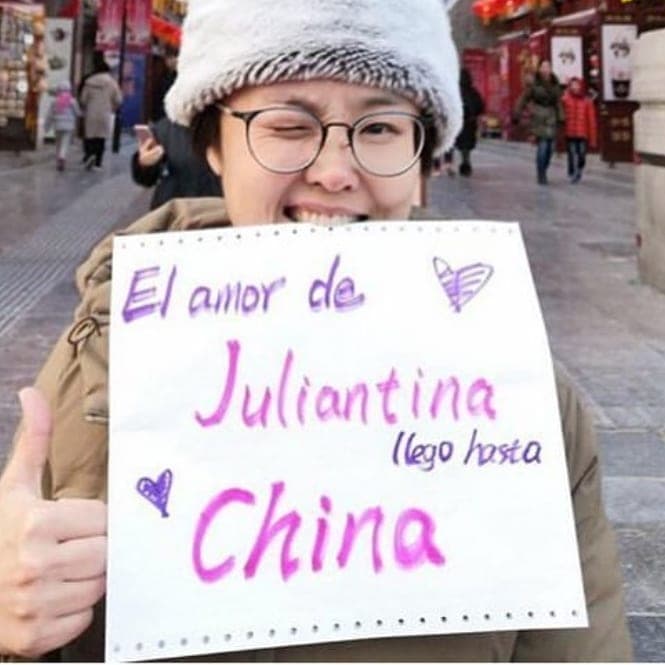 El amor de
Juliantina
llego hasta
China